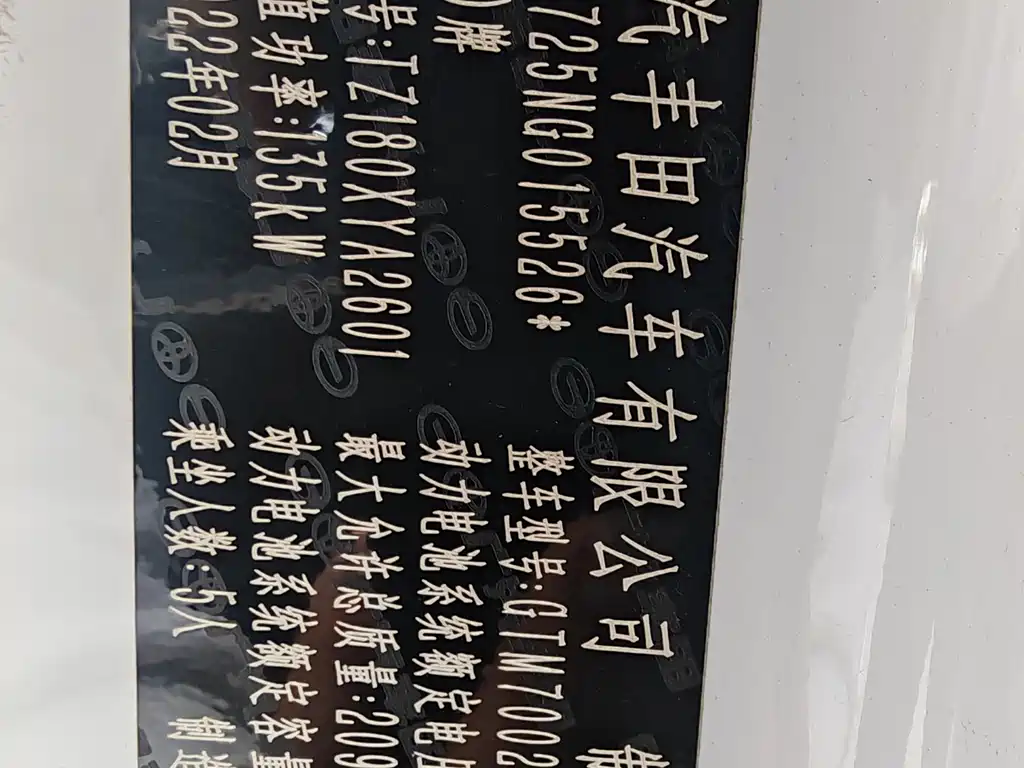 汽丰田汽车有限公司
725NG015526* 整车型号:GTM7002
牌 动力电池系统额定电压
号:TZ180XYA2601 最大允许总质量:209
值功率:135kW 动力电池系统额定容量
22年02月 乘坐人数:5人 制造